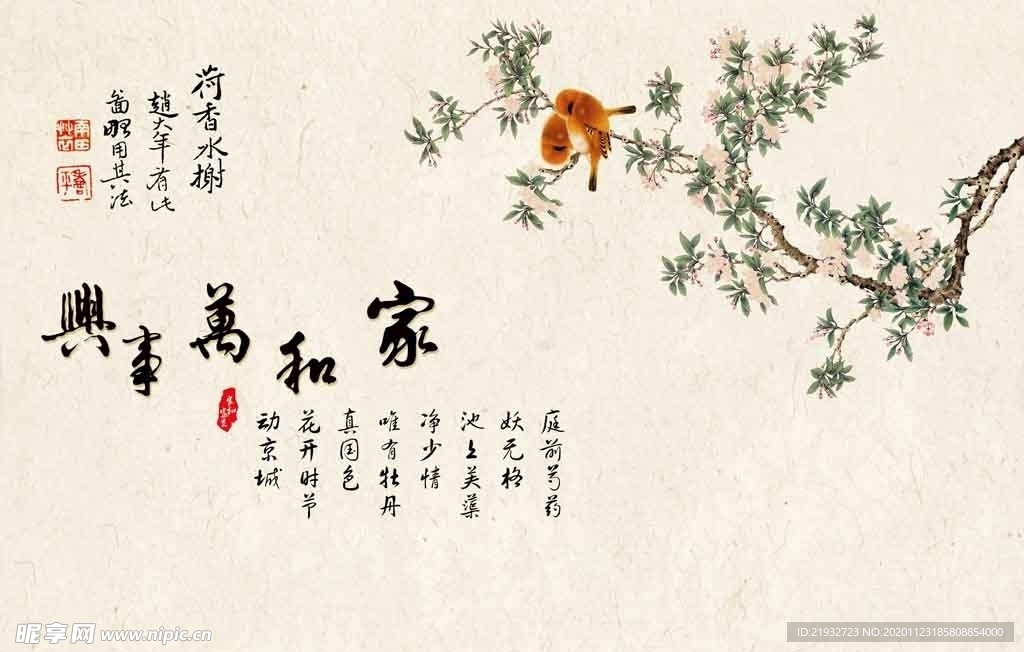 荷香水榭
趙大年有此
用其法
南田艸衣
家和萬事興
庭前芍药
妖无格
池上芙蕖
净少情
唯有牡丹
真国色
花开时节
动京城
昵享网 www.nipic.cn
ID:21932723 NO:20201123185808854000